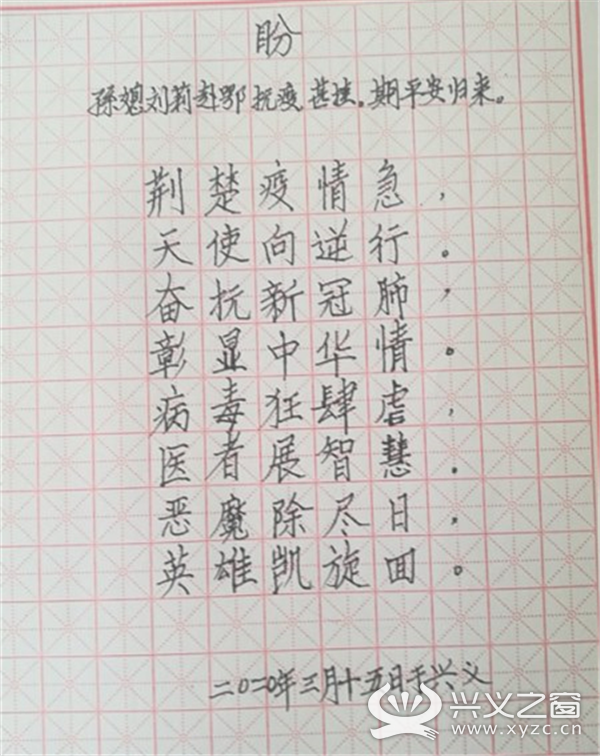 盼
孙媳刘莉赴鄂抗疫甚挂。期平安归来。
荆楚疫情急，
天使向逆行。
奋抗新冠肺，
彰显中华情。
病毒狂肆虐，
医者展智慧.
恶魔除尽日，
英雄凯旋回。
二〇二〇年三月十五日于兴义
兴义之窗
www.xyzc.cn